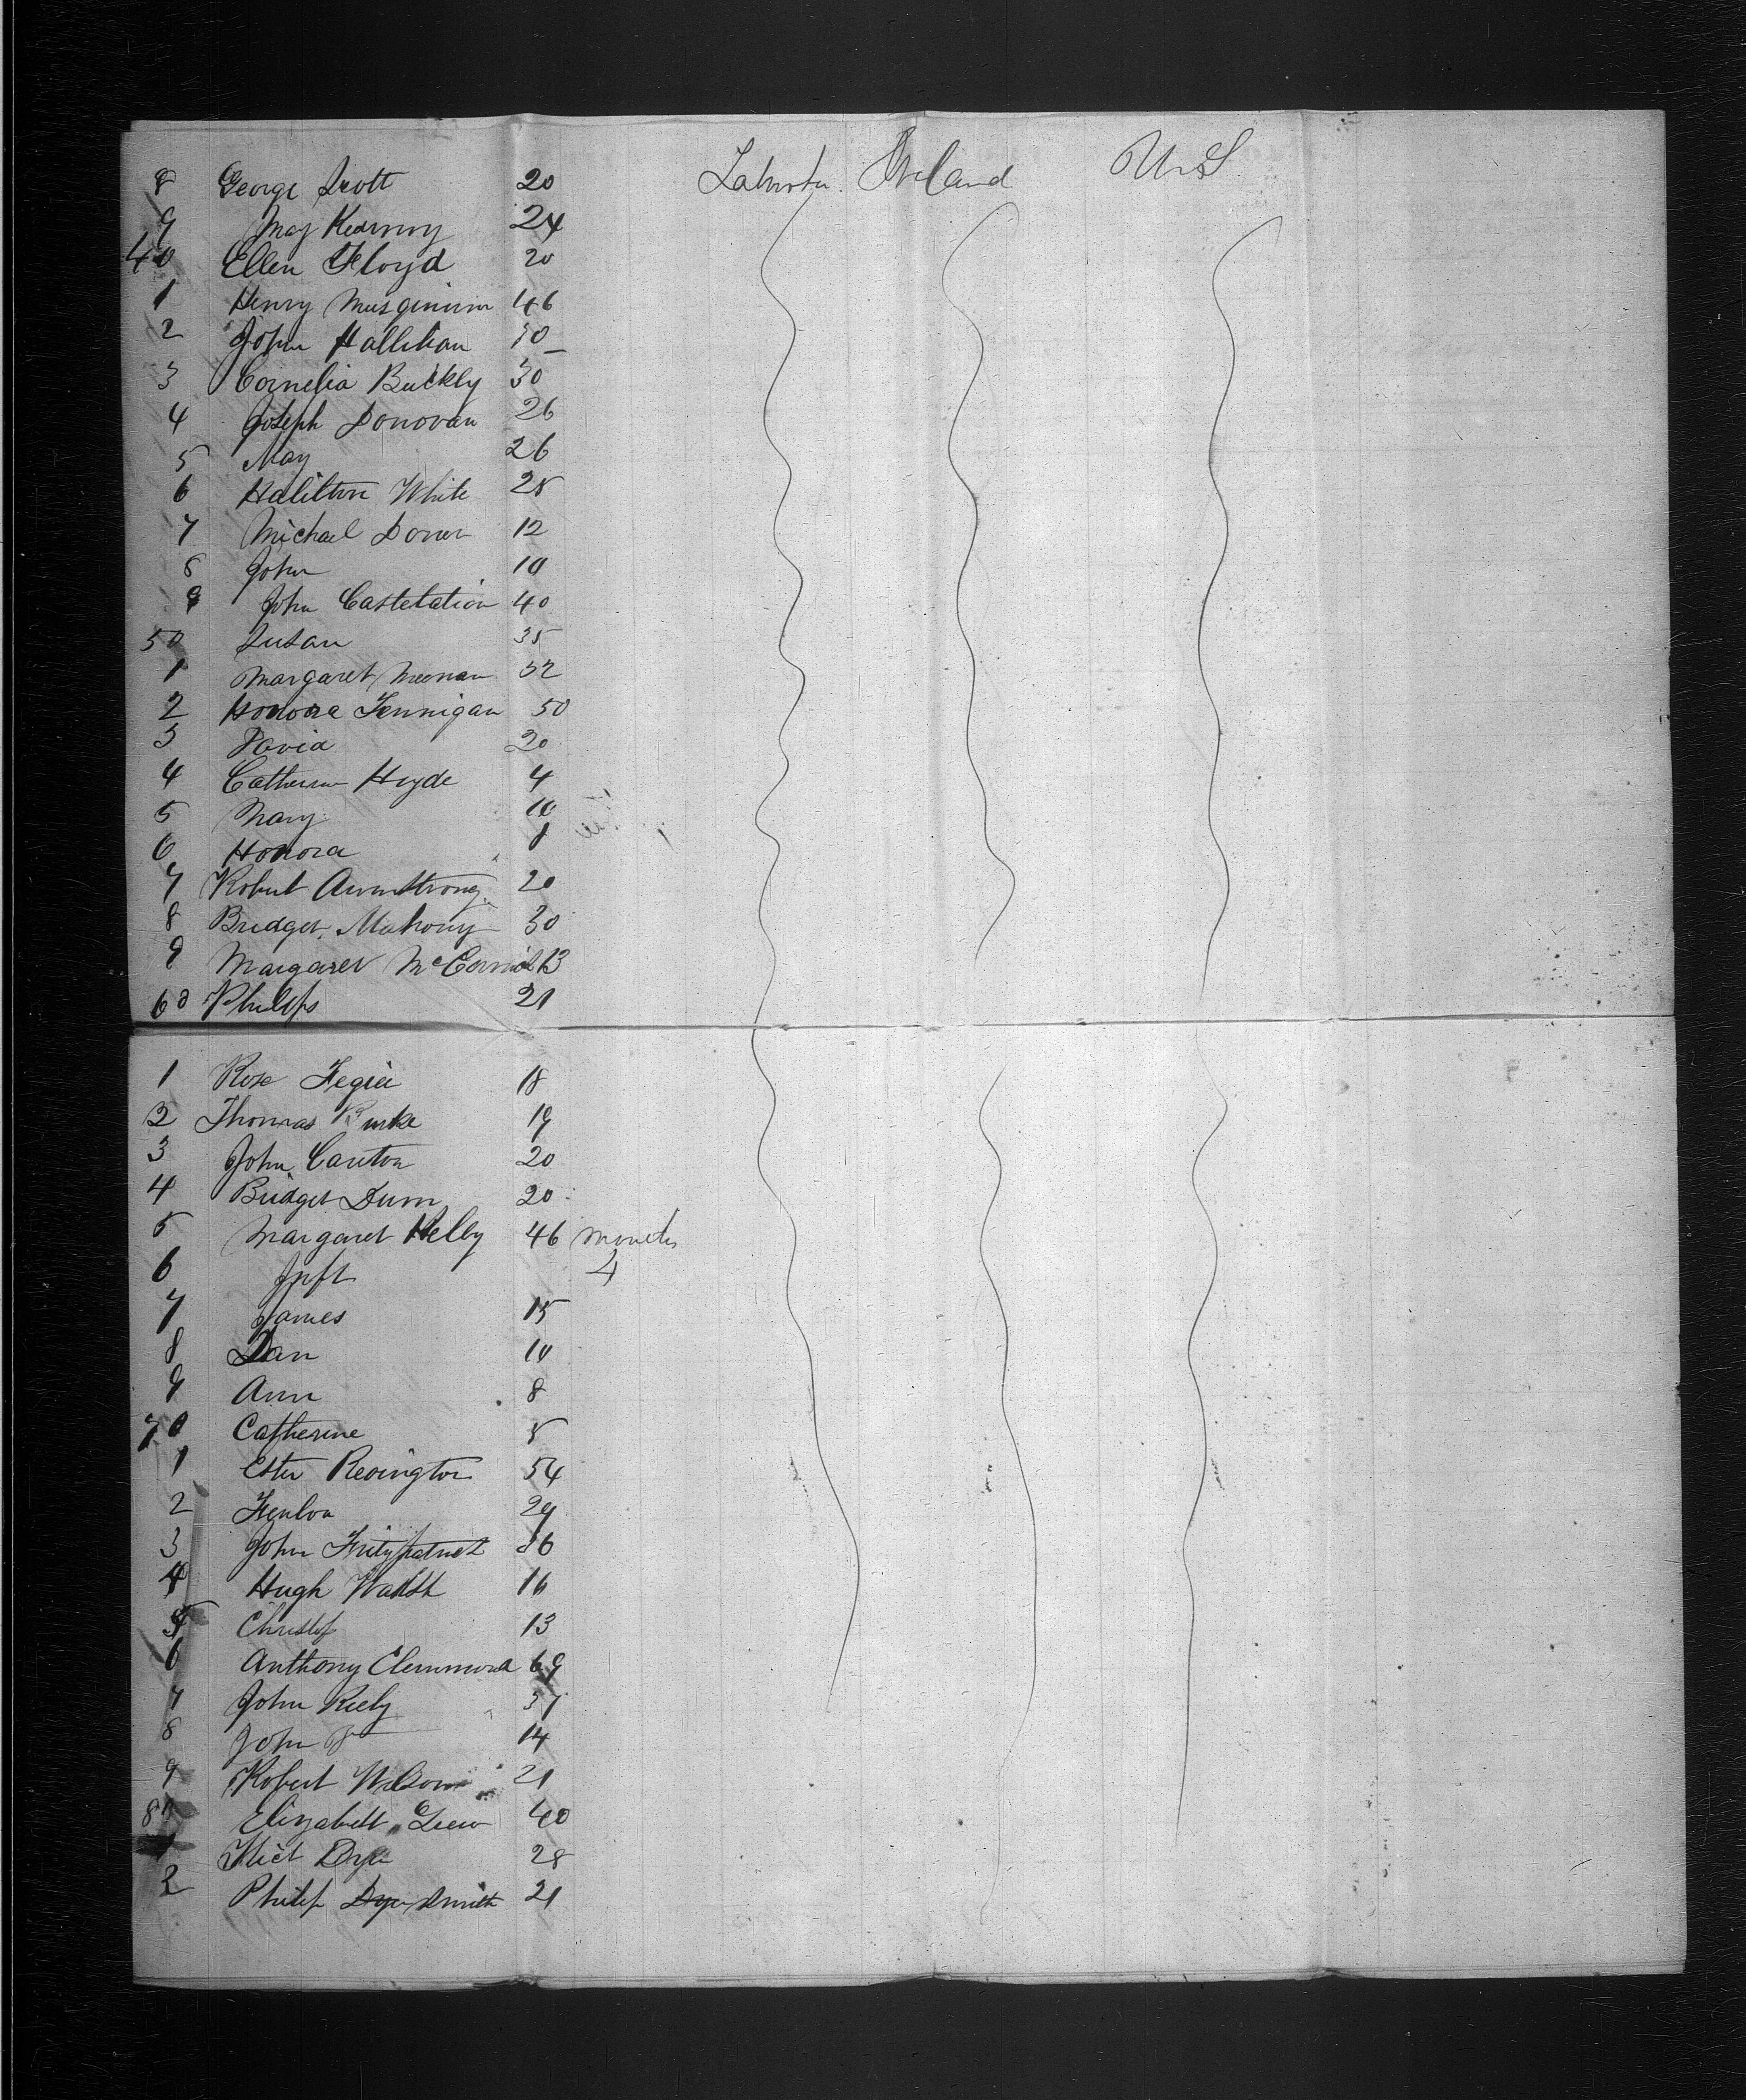 8 George Scott 20 Laborer Ireland U.S
9 May Kearney 24
40 Ellen Floyd 20
1 Henry 46
2 John Hallihan
3 Cornelia Buckly 30
4 Joseph Donovan 26
5 May 26
6 Halilton White 25
7 Michael 12
8 John 10
9 John Castelation 40
50 Susan 35
1 Margaret Meenan 32
2 Honora Fennigan 50
3 David 20
4 Catherine Hyde 4
5 Mary 10
6 Honora
7 Robert Armstrong 20
8 Bridget Mahony 30
9 Margaret McCormick 13
60 Philips 21
1 Rose 18
2 Thomas Burke 19
3 John Canton 20
4 Bridget Dunn 20
5 Margaret Kelly 46 months
6 Inft 4
7 James 15
8 Dan 10
9 Ann 8
70 Catherine 5
1 Ester Revington 54
2 Fenlon 29
3 John Fritzpatrick 36
4 Hugh Walsh 16
5 Christof 13
6 Anthony 69
7 John Kiely 37
8 John 14
9 Robert Wilson 21
80 Elizabeth 40
1 Dyer 28
2 Philip Dyer Smith 21